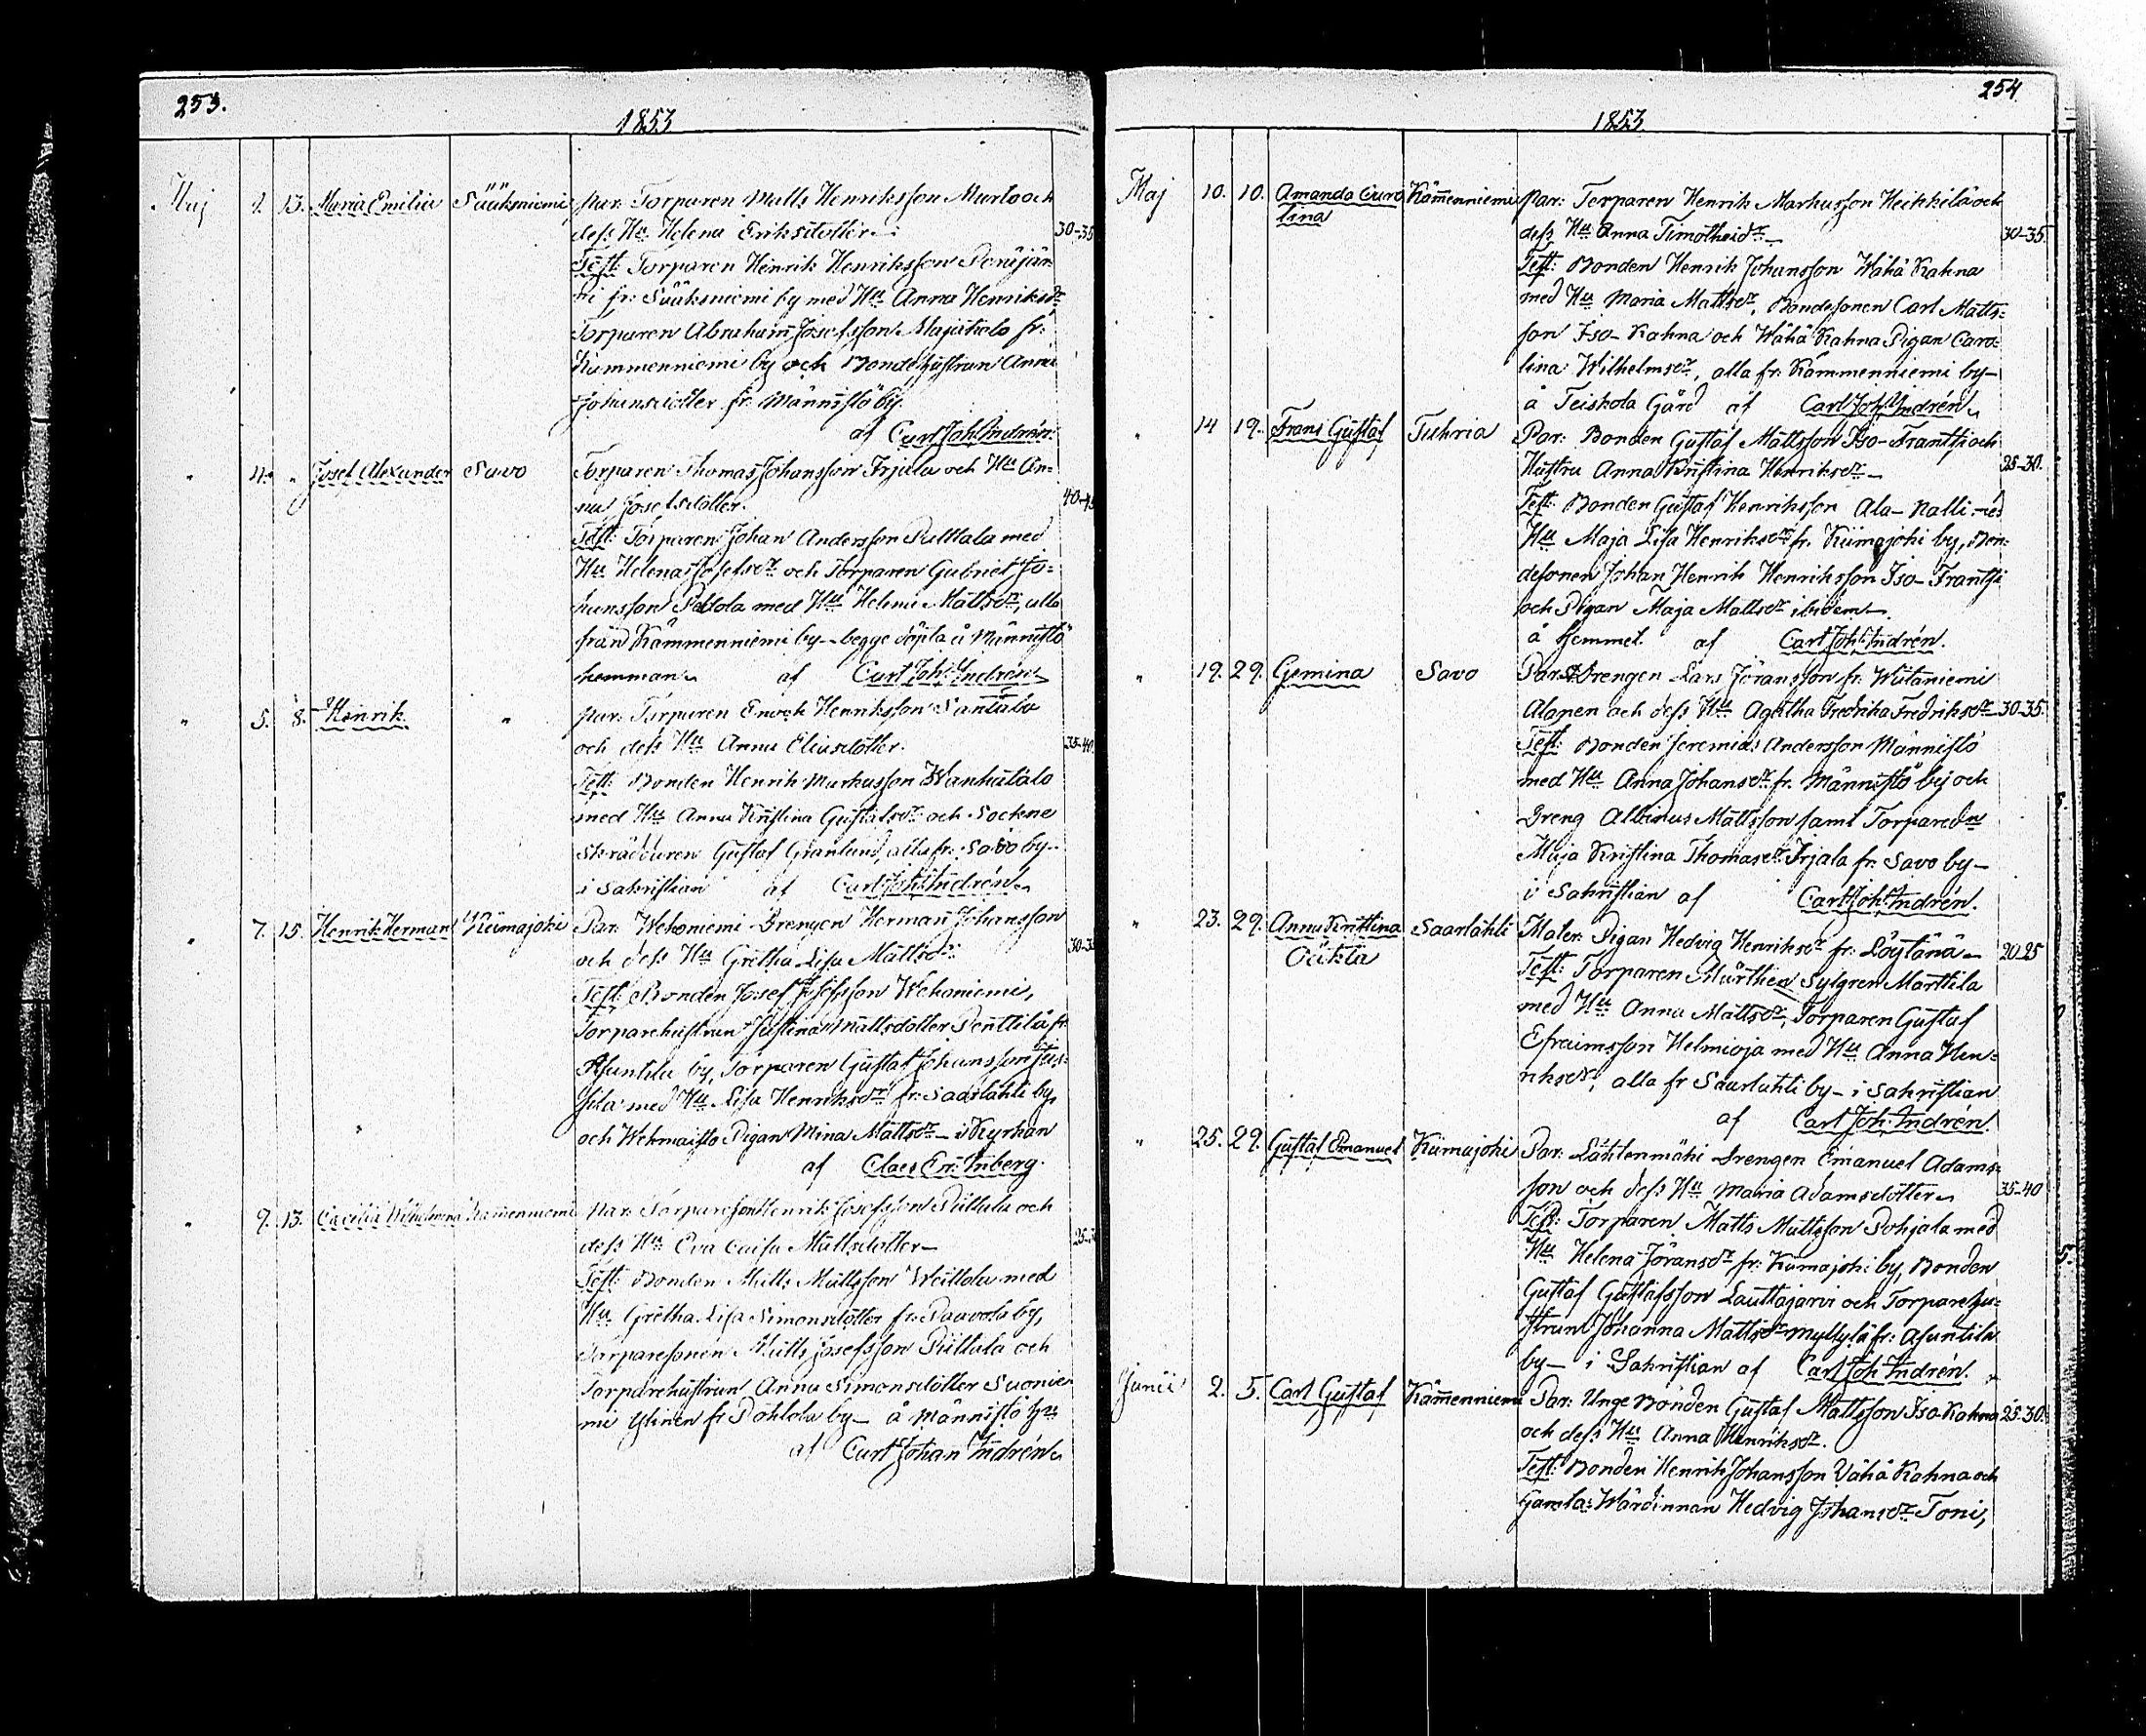 253.
1853
Maj 1. 13. Maria Emilia Sääksniemi Par: Torparen Matts Henriksson Murto och
dess Hu Helena Eriksdotter 30-35
Test: Torparen Henrik Henriksson
fr: Sääksniemi by med Hu Anna Henriksdr,
Torparen Abraham Josefsson Majatalo fr:
Kämmenniemi by och Bondehustrun Anna
Johansdotter fr: Männistö by.
af Carl Joh: Indrén.
" 4. " Josef Alexander Savo Torparen Thomas Johansson Irjala och Hu An-
na Josefsdotter. 40-45
Test: Torparen Johan Andersson Pulttala med
Hu Helena Josefsdr och Torparen Gabriel Jo-
hansson Peltola med Hu Helena Mattsdr, alla
från Kämmenniemi by - begge döpta å Männistö
hemman af Carl Joh: Indrén
" 5. 8. Henrik " par: Torparen Enoch Henriksson Santala
och dess Hu Anna Eliasdotter. 35-40.
Test: Bonden Henrik Markusson Wanhatalo
med Hu Anna Kristina Gustafsdr och Sockne
Skräddaren Gustaf Granlund, alla fr: Savo by -
i Sakristian af Carl Joh: Indrén
" 7. 15. Henrik Herman Kiimajoki Par: Wehoniemi Drengen Herman Johansson
och dess Hu Gretha Lisa Mattsdr 30-35
Test: Bonden Josef Josefsson Wehoniemi,
Torparehustrun Justina Mattsdotter Penttilä fr:
Asuntila by, Torparen Gustaf Johansson Jus-
sila med Hu Lisa Henriksdr fr: Saarlahti by,
och Wehmaisto Pigan Mina Mattsdr - i Kyrkan
af Claes Er: Inberg.
" 9. 13. Cæcilia Wilhelmina Kämenniemi Par: Torparesonen Henrik Josefsson Pulttala och
dess Hu Eva Caisa Mattsdotter - 25-
Test: Bonden Matts Mattsson Weittola med
Hu Gretha Lisa Simonsdotter fr: Paavola by,
Torparesonen Matts Josefsson Pulttala och
Torparehustrun Anna Simonsdotter Suonie-
mi Ylinen fr Pohtola by - å Männistö
af Carl Johan Indrén
254
1853
Maj 10. 10. Amanda Caro Kämenniemi Par: Torparen Henrik Markusson Heikkilä och
lina dess Hu Anna Timotheidr - 30-35.
Test: Bonden Henrik Johansson Wähä Kahna
med Hu Maria Mattsdr, Bondesonen Carl Matts-
son Iso-Kahna och Wähä Kahna Pigan Caro-
lina Wilhelmsdr, alla fr: Kämmenniemi by -
å Teiskola Gård af Carl Joh: Indrén
" 14 19. Frans Gustaf Tuhria Par: Bonden Gustaf Mattsson Iso-Frantsi och
Hustru Anna Kristina Henriksdr - 25-30.
Test: Bonden Gustaf Henriksson Ala-Nalli med
Hu Maja Lisa Henriksdr fr. Kiimajoki by, Bon-
desonen Johan Henrik Henriksson Iso-Frantsi
och Pigan Maja Mattsdr ibidem -
å hemmet. af Carl Joh: Indrén.
" 19. 29. Gemina Savo Par: Drengen Lars Jöransson fr: Wiitaniemi
Alanen och dess Hu Agatha Fredrika Fredriksdr 30-35.
Test: Bonden Jeremias Andersson Männistö
med Hu Anna Johansdr fr. Männistö by och
Dreng Albinus Mattsson samt Torparedn
Maja Kristina Thomasdr Irjala fr: Savo by -
i Sakristian af Carl Joh: Indrén.
" 23. 29. Anna Kristina Saarlahti Mater: Pigan Hedvig Henriksdr fr: Löytänä - 20-25
Oäkta Test: Torparen Märthen Sylgren Marttila
med Hu Anna Mattsdr, Torparen Gustaf
Efraimsson Helmioja med Hu Anna Hen-
riksdr, alla fr Saarlahti by - i Sakristian
af Carl Joh: Indrén.
" 25. 29. Gustaf Emanuel Kiimajoki Par: Lähtenmäki Drengen Emanuel Adams-
son och dess Hu Maria Adamsdotter 35-40
Test: Torparen Matts Mattsson Pohjala med
Hu Helena Jöransdr fr: Kiimajoki by, Bonden
Gustaf Gustafsson Lauttajärvi och Torparehu-
strun Johanna Mattsdr Myllylä fr: Asuntila
by - i Sakristian af Carl Joh Indrén.
Junii 2. 5. Carl Gustaf Kämenniemi Par: Unge Bonden Gustaf Mattsson Iso-Kahna 25-30.
och dess Hu Anna Henriksdr.
Test: Bonden Henrik Johansson Vähä Kahna och
Gamla Wärdinnan Hedvig Johansdr Toni,